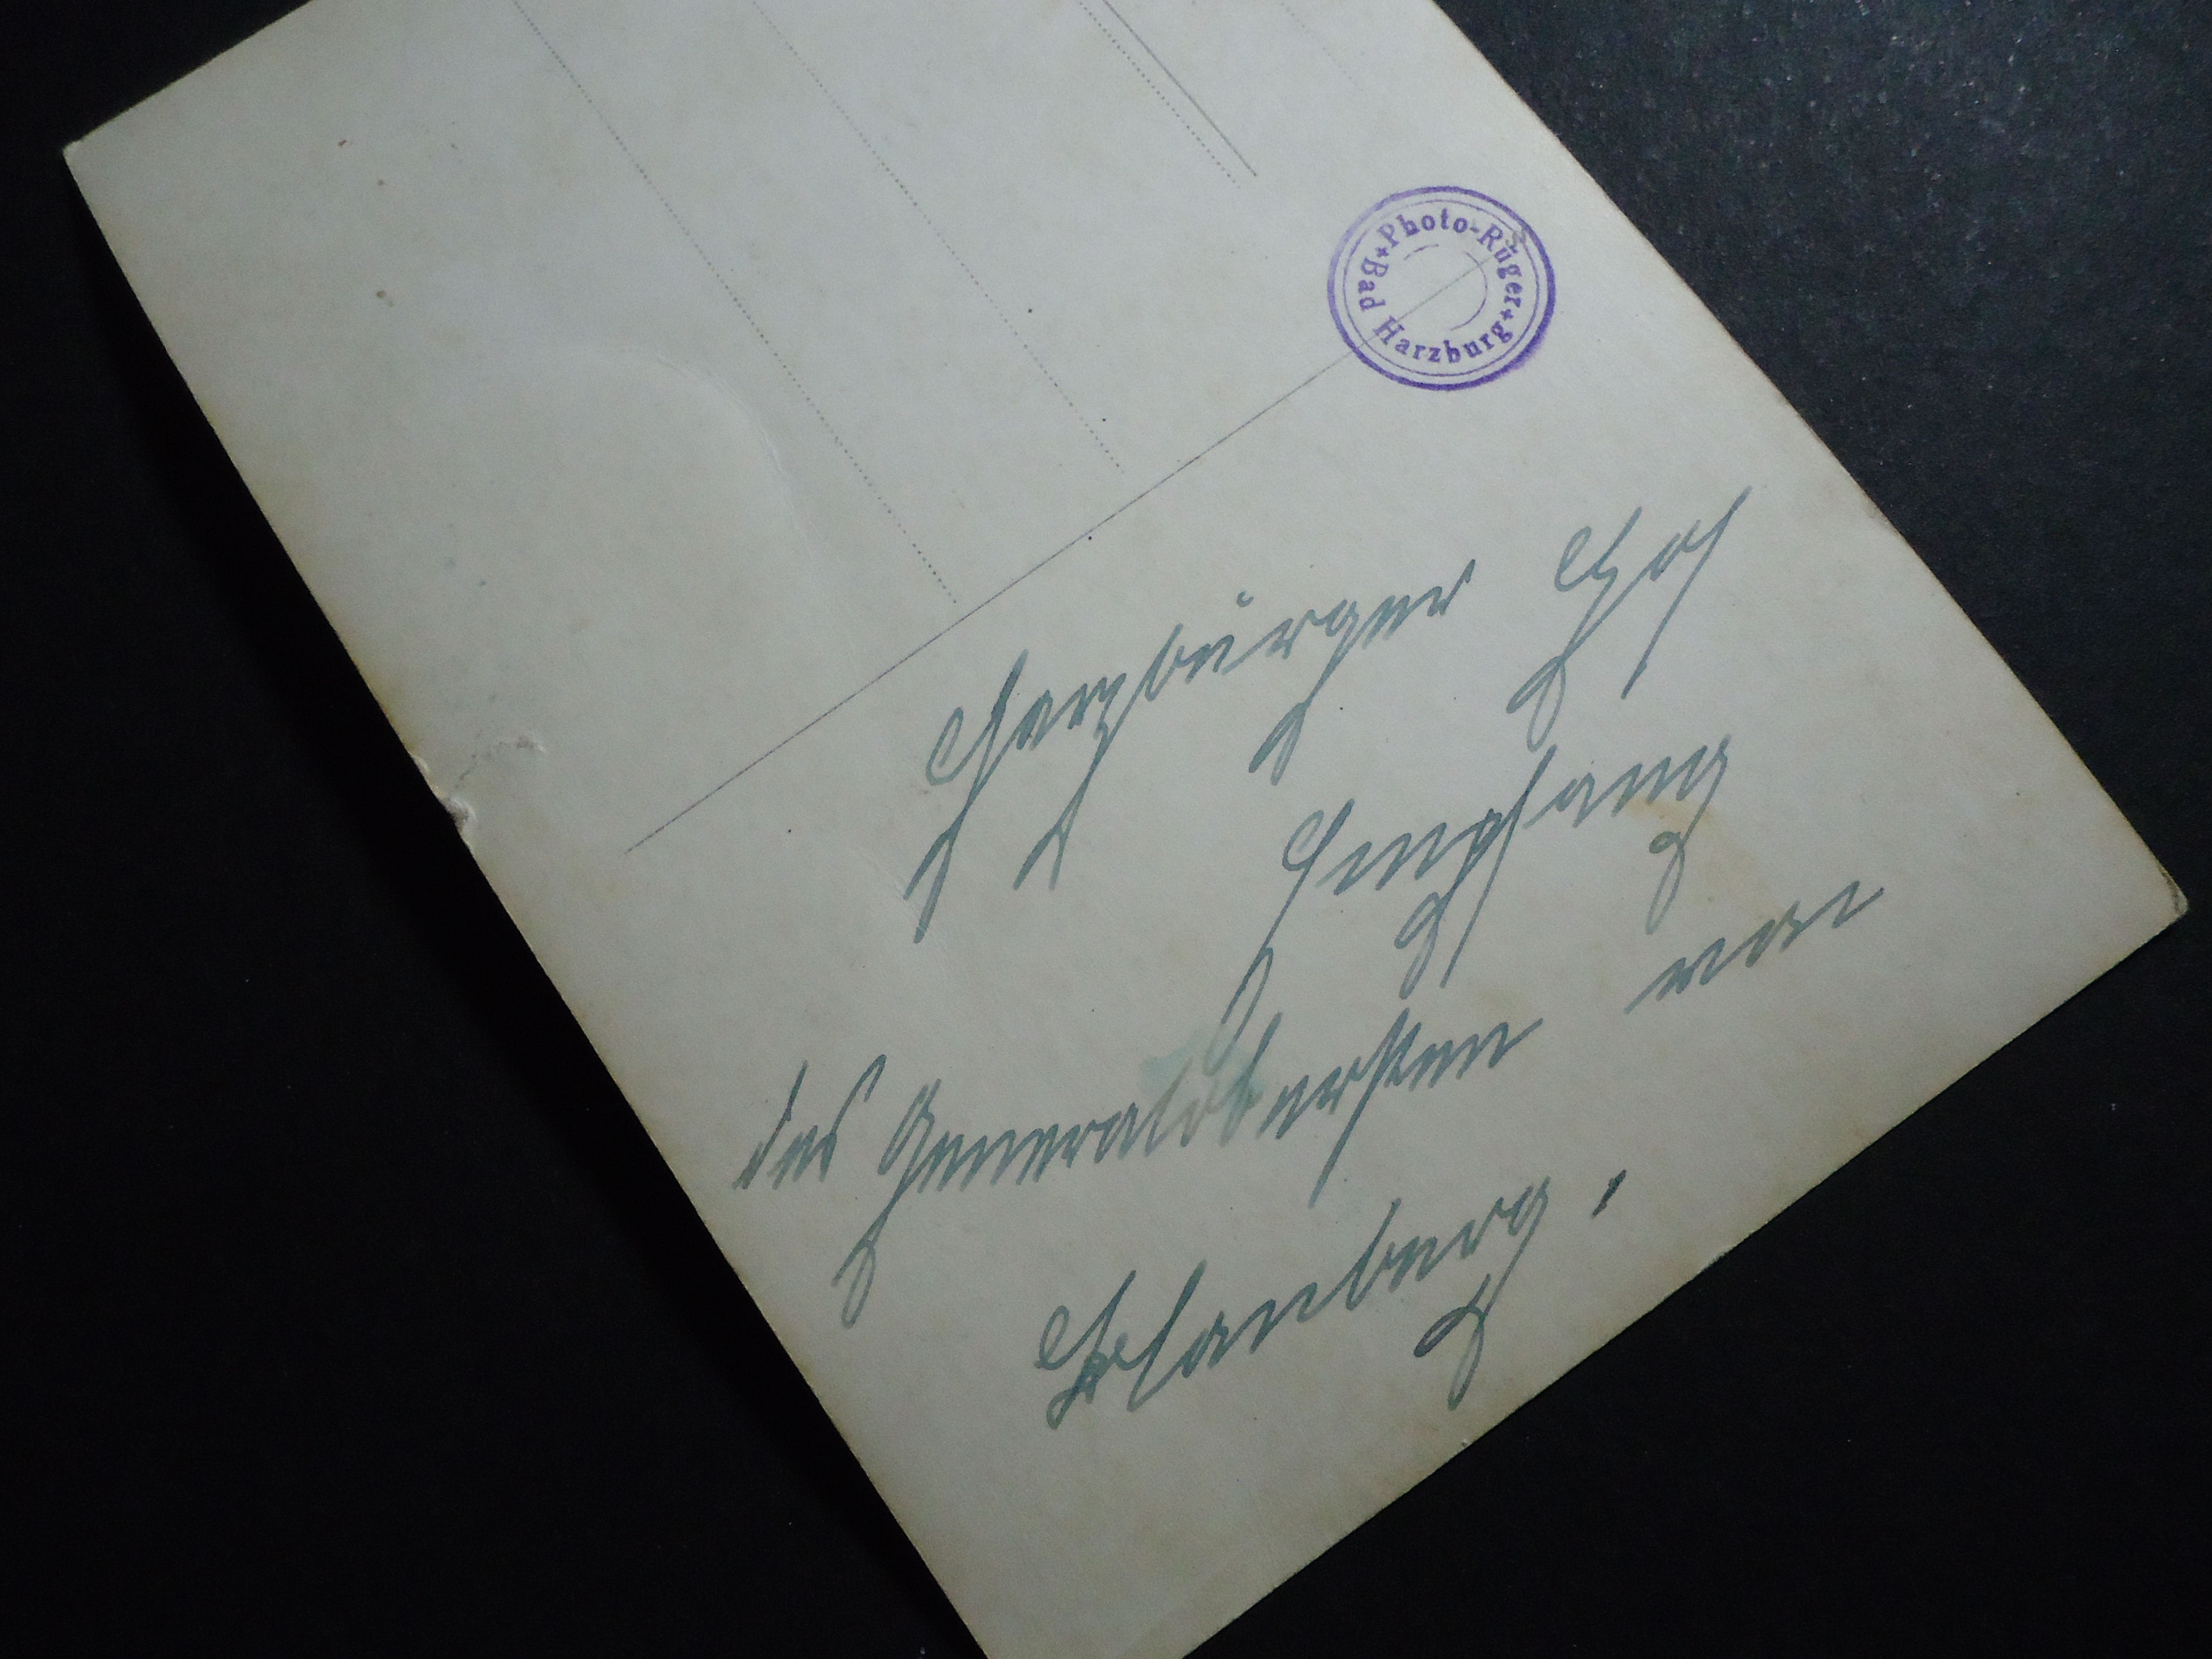 *Photo-Rüger*
Bad Harzburg
Harzburger Hof
Empfang
des Generalobersten von